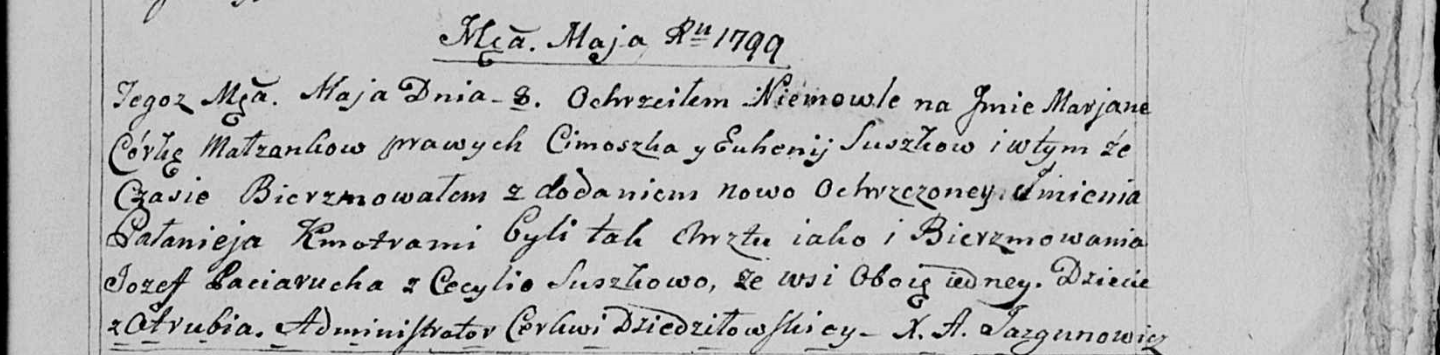 Mca. Maja Ru 1799
Tegoz Mca. Maja Dnia - 8. Ochrzciłem Niemowle na Jmie Marjane
Córkę Małzonkow prawych Cimoszka y Euhenij Suszkow i w tym że
Czasie Bierzmowałem z dodaniem nowo Ochrzczoney Jmienia
Pałanieja Kmotrami byli tak chrztu iako i Bierzmowania
Jozeff Paciarucha z Cecylio Suszkowo, ze wsi Oboię iedney. Dziecie
z Otrubia. Administrator Cerkwi Dziedziłowskiey - X. A. Jazgunowicz